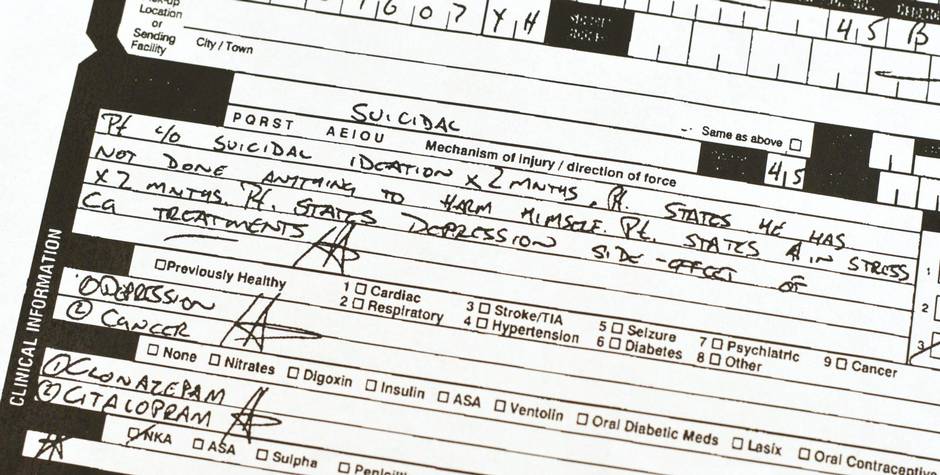 Pick-up
Location
or
Sending
Facility
City / Town
607 YH
45 B
SUICIDAL
PQRST AEIOU Mechanism of injury / direction of force
Same as above ☐
45
Pt c/o SUICIDAL IDEATION x 2 MNTHS. Pt. STATES HE HAS
NOT DONE ANYTHING TO HARM HIMSELF. Pt. STATES ↑ IN STRESS
x 2 MNTHS. Pt. STATES DEPRESSION SIDE-EFFECT OF
Ca TREATMENTS
CLINICAL INFORMATION
☐ Previously Healthy
1 ☐ Cardiac 3 ☐ Stroke/TIA 5 ☐ Seizure 7 ☐ Psychiatric 9 ☐ Cancer
2 ☐ Respiratory 4 ☐ Hypertension 6 ☐ Diabetes 8 ☐ Other
① DEPRESSION
② CANCER
☐ None ☐ Nitrates ☐ Digoxin ☐ Insulin ☐ ASA ☐ Ventolin ☐ Oral Diabetic Meds ☐ Lasix ☐ Oral Contraceptive
① CLONAZEPAM
② CITALOPRAM
☑ NKA ☐ ASA ☐ Sulpha ☐
1
2
3